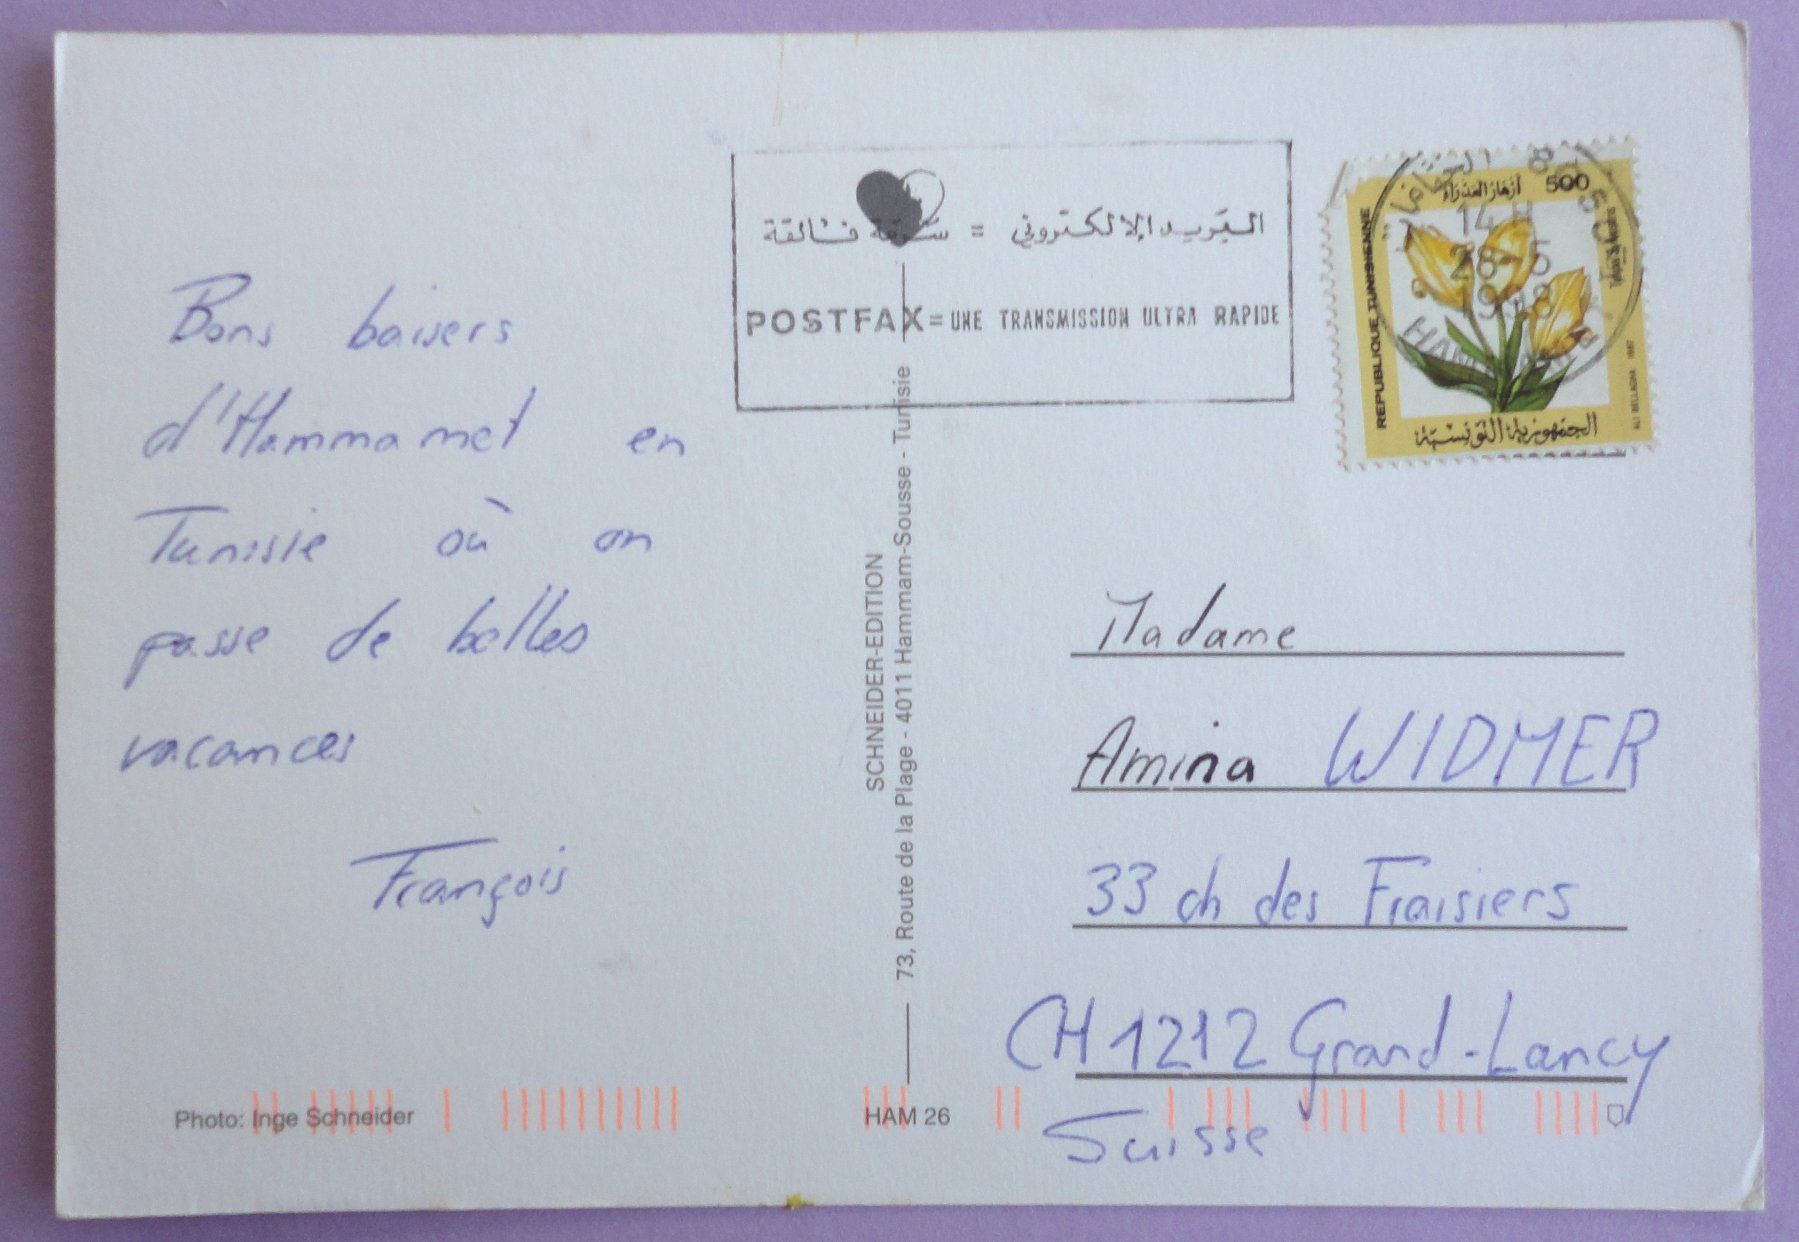 Bons baisers
d'Hammamet en
Tunisie où on
passe de belles
vacances
François
Photo: Inge Schneider
البريد الإلكتروني = سرعة فائقة
POSTFAX = UNE TRANSMISSION ULTRA RAPIDE
SCHNEIDER-EDITION
73, Route de la Plage - 4011 Hammam-Sousse - Tunisie
HAM 26
500
REPUBLIQUE TUNISIENNE
الجمهورية التونسية
ALI BELLAGHA 1987
Madame
Amina WIDMER
33 ch des Fraisiers
CH 1212 Grand-Lancy
Suisse